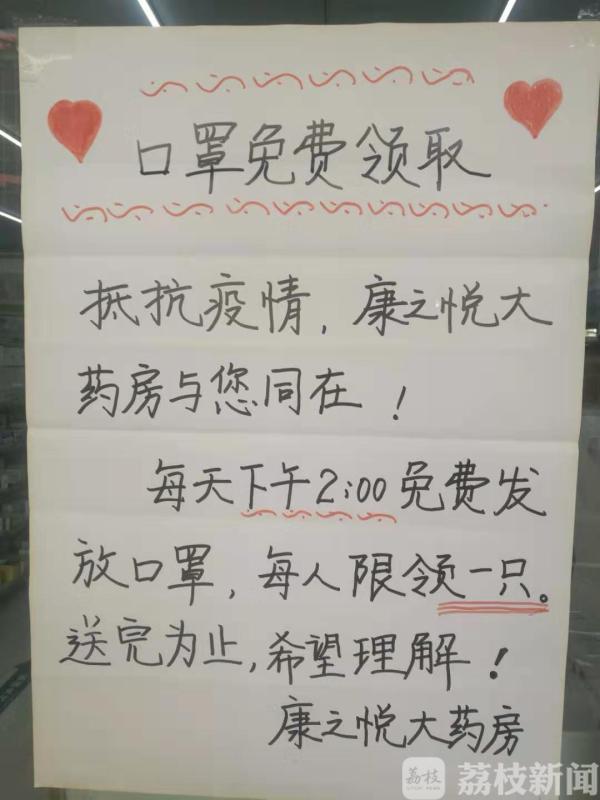 口罩免费领取
抵抗疫情，康之悦大
药房与您同在！
每天下午2:00免费发
放口罩，每人限领一只。
送完为止，希望理解！
康之悦大药房
荔枝
荔枝新闻